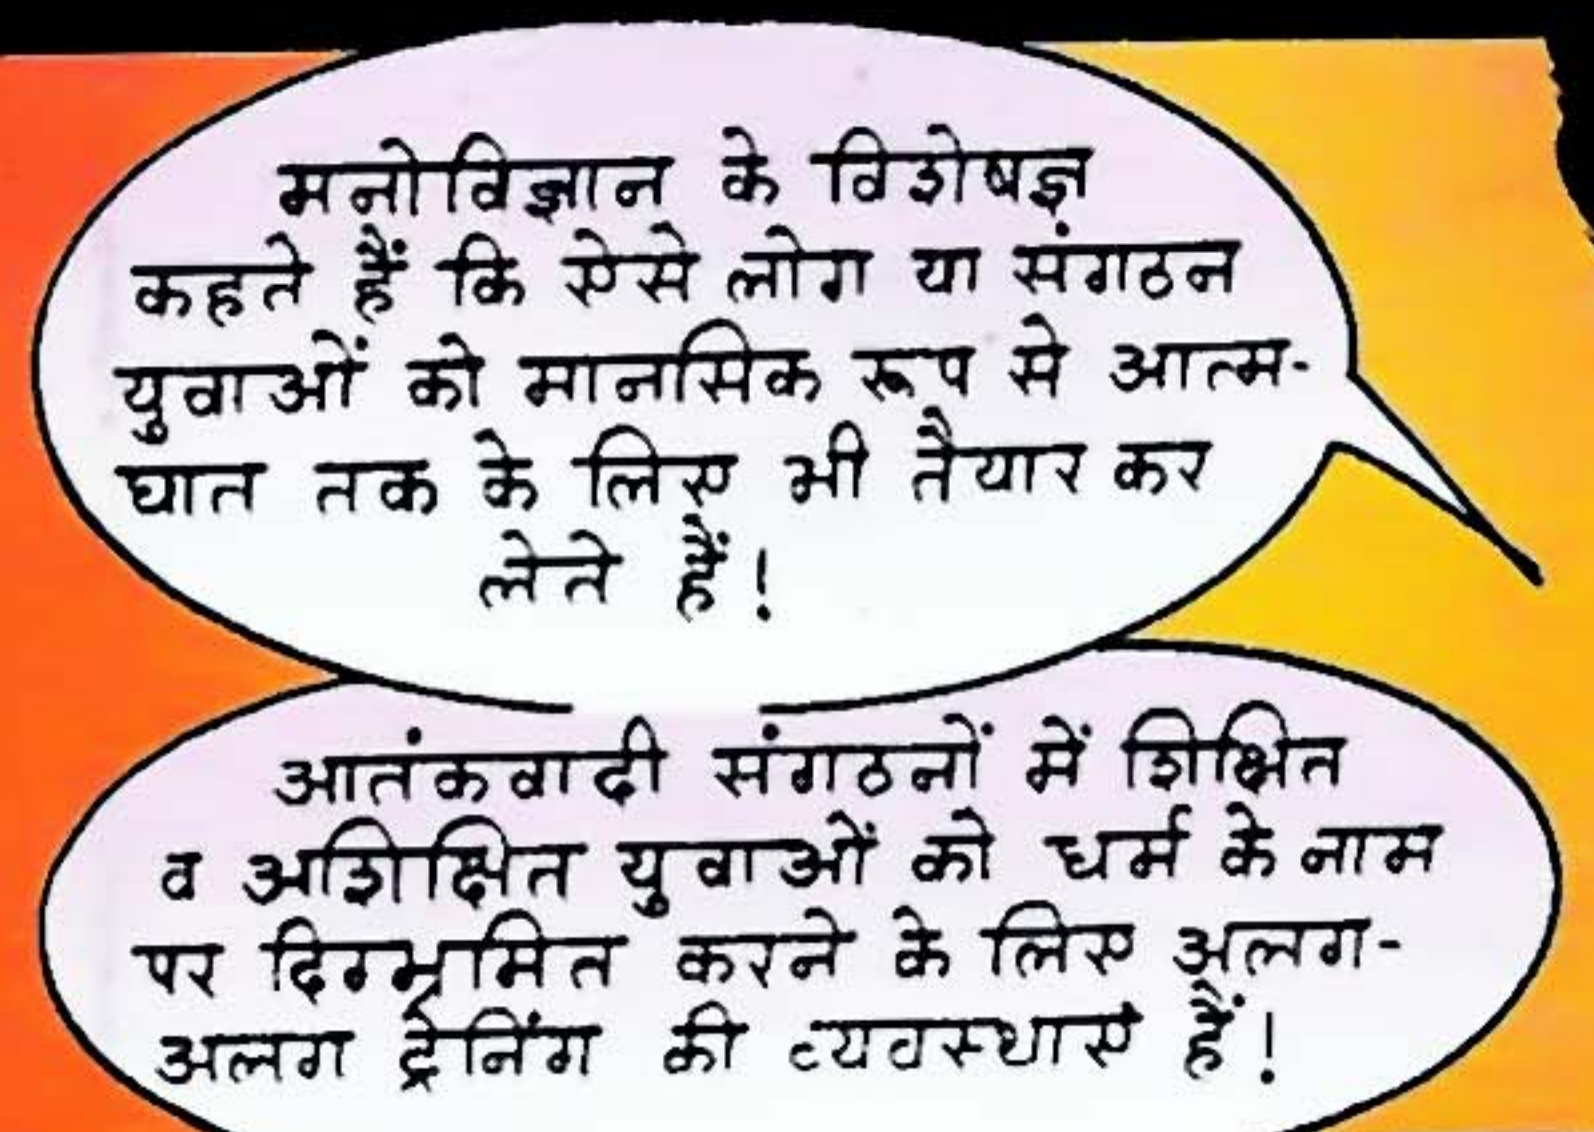 मनोविज्ञान के विशेषज्ञ
कहते हैं कि ऐसे लोग या संगठन
युवाओं को मानसिक रूप से आत्म-
घात तक के लिए भी तैयार कर
लेते हैं!
आतंकवादी संगठनों में शिक्षित
व अशिक्षित युवाओं को धर्म के नाम
पर दिग्भ्रमित करने के लिए अलग-
अलग ट्रेनिंग की व्यवस्थाएं हैं!